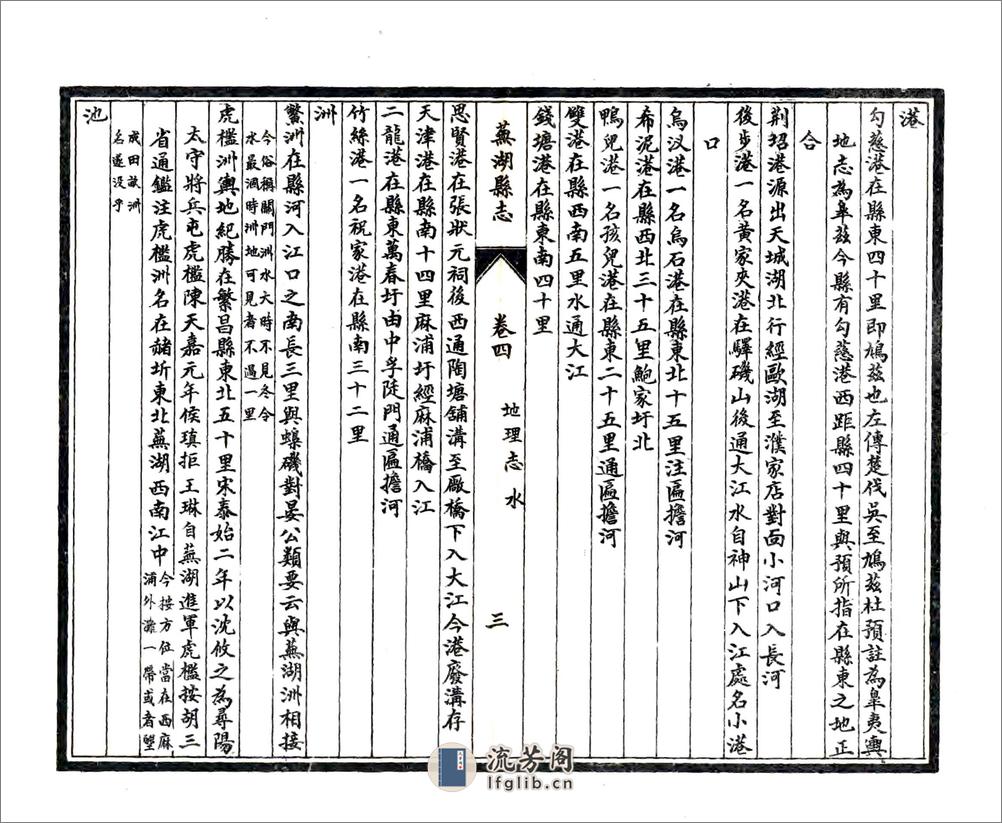 港
勾慈港在縣東四十里即鳩茲也左傳楚伐吳至鳩茲杜預註為臯夷輿
地志為臯茲今縣有勾慈港西距縣四十里與預所指在縣東之地正
合
荆玿港源出天城湖北行經歐湖至濮家店對面小河口入長河
後步港一名黃家夾港在驛磯山後通大江水自神山下入江處名小港
口
烏汊港一名烏石港在縣東北十五里注匾擔河
希泥港在縣西北三十五里鮑家圩北
鴨兒港一名孩兒港在縣東二十五里通匾擔河
雙港在縣西南五里水通大江
錢塘港在縣東南四十里
蕪湖縣志
卷四
地理志 水
三
思賢港在張狀元祠後西通陶塘舖溝至廠橋下入大江今港廢溝存
天津港在縣南十四里麻浦圩經麻浦橋入江
二龍港在縣東萬春圩由中孚陡門通匾擔河
竹絲港一名祝家港在縣南三十二里
洲
鱉洲在縣河入江口之南長三里與蟂磯對晏公類要云與蕪湖洲相接
今俗稱關門洲水大時不見冬令
水最涸時洲地可見者不過一里
虎檻洲輿地紀勝在繁昌縣東北五十里宋泰始二年以沈攸之為尋陽
太守將兵屯虎檻陳天嘉元年侯瑱拒王琳自蕪湖進軍虎檻按胡三
省通鑑注虎檻洲名在赭圻東北蕪湖西南江中
今按方位當在西麻
浦外灘一帶或者壄
成田故洲
名遂没乎
池
流芳阁
lfglib.cn